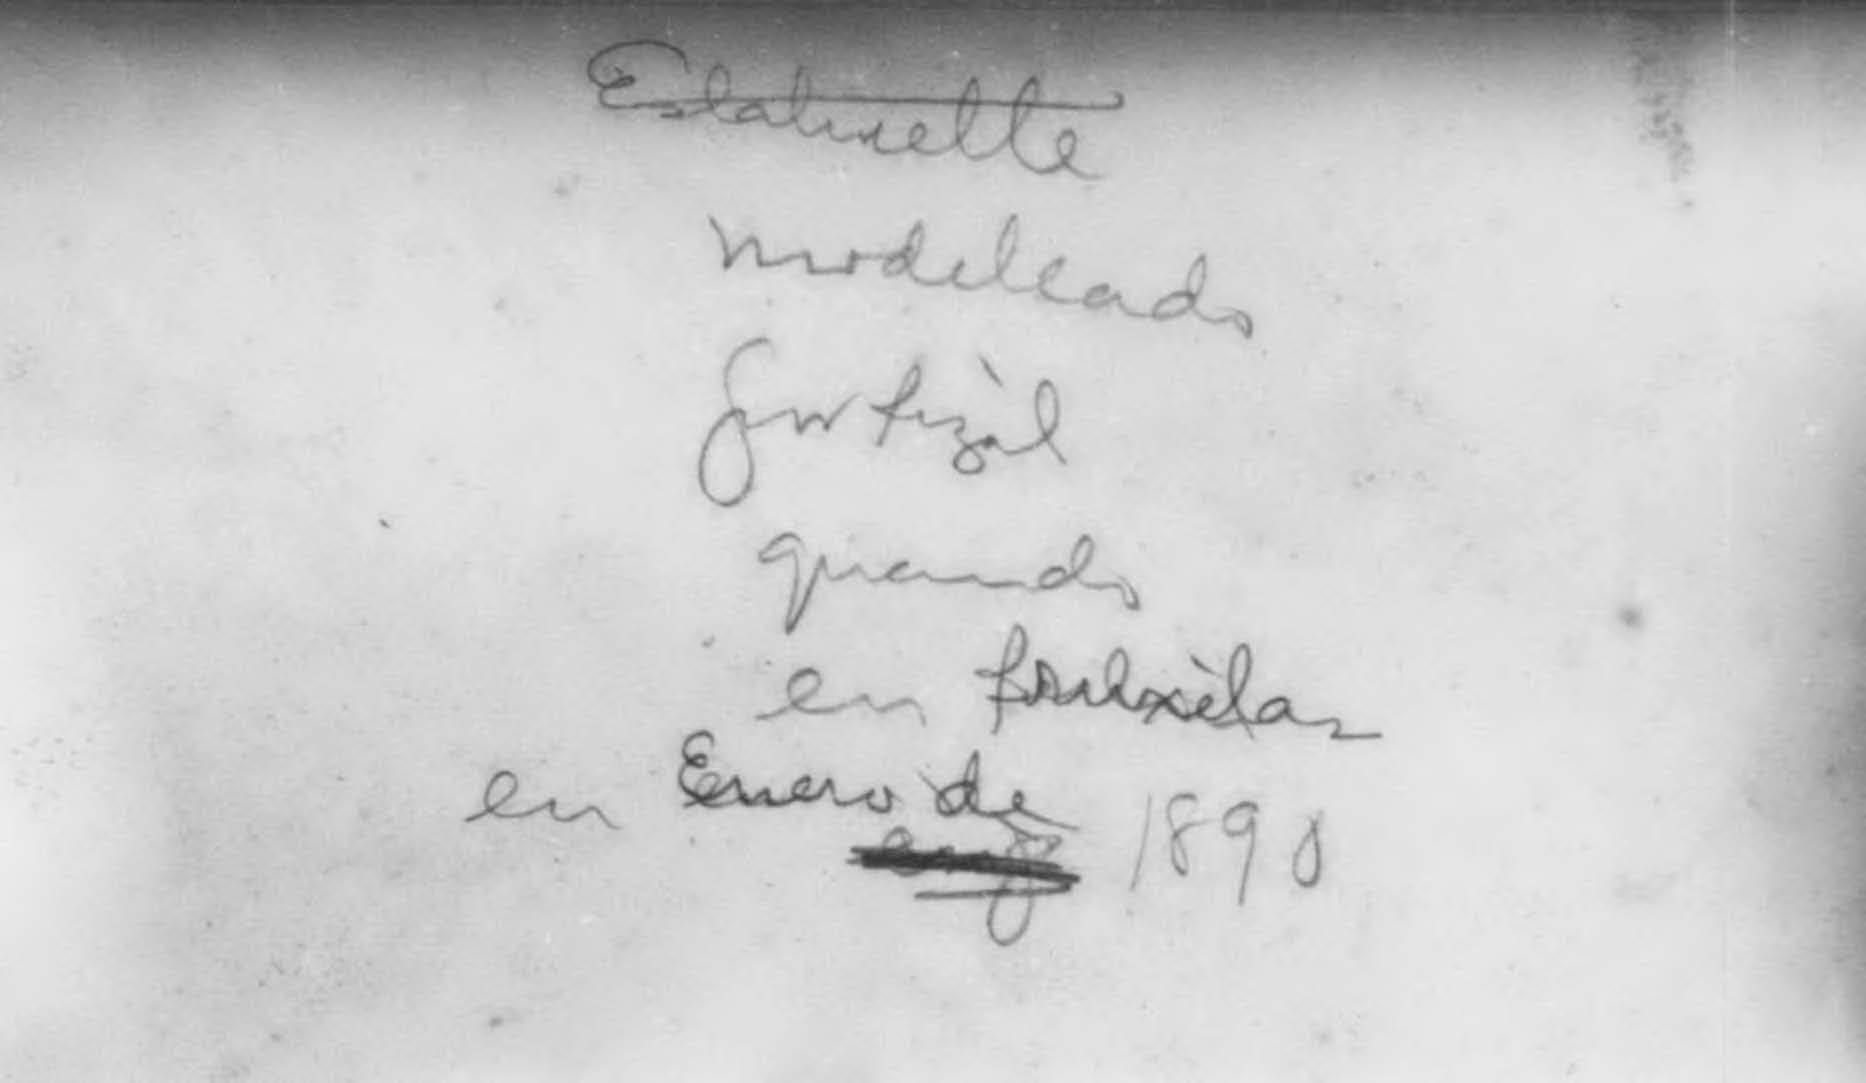 Estatuette
modeleado
por Rizàl
quando
en Bruxèlas
en Enero de 1890